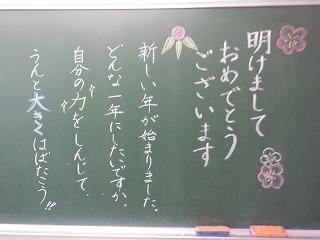 明けまして
おめでとう
ございます
新しい年が始まりました。
どんな一年にしたいですか。
自分の力をしんじて
うんと大きくはばたこう!!